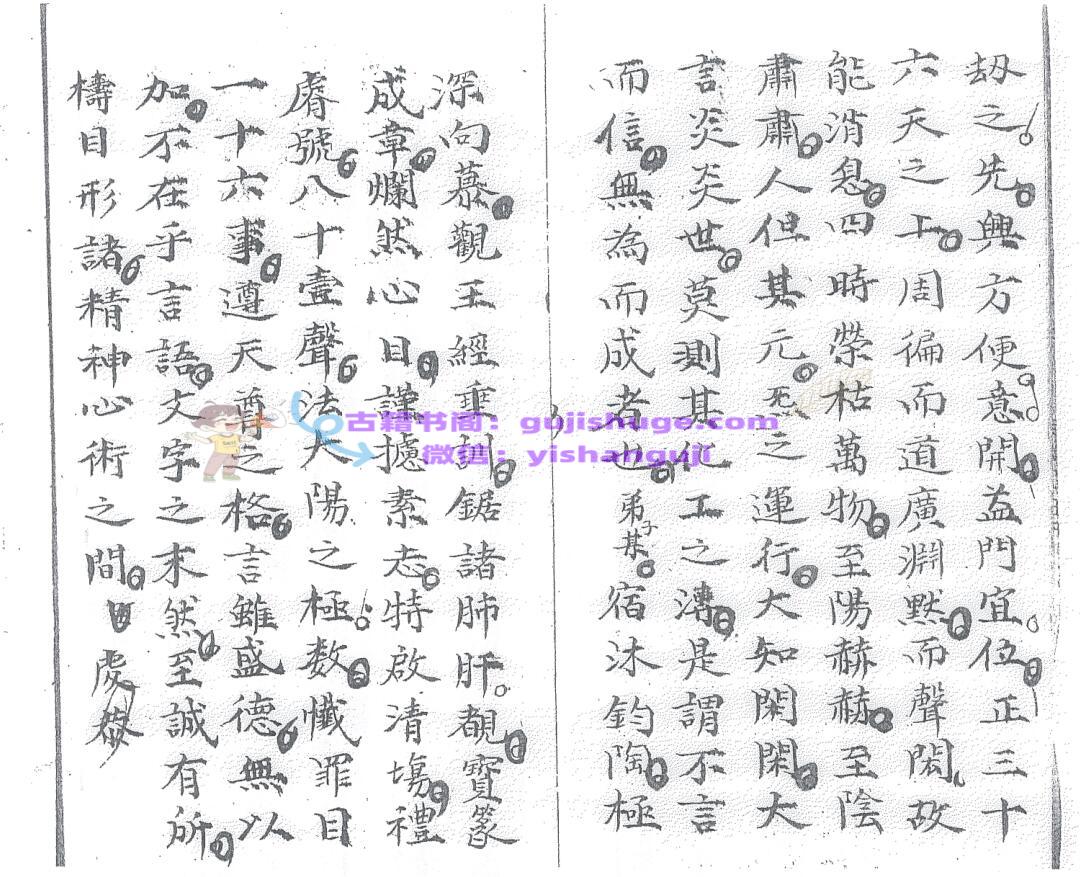 劫之先興方便意開益門宜位正三十
六天之上周徧而道廣淵默而聲閎故
能消息四時榮枯萬物至陽赫赫至陰
肅肅人但其元炁之運行大知閑閑大
言炎炎世莫測其化工之溥是謂不言
而信無為而成者也弟子某宿沐鈞陶極
深向慕觀王經垂訓鋸諸肺肝覩寶篆
成章爛然心目謹攄素志特啟清場禮
膺號八十壹聲法大陽之極数懺罪目
一十六事遵天尊之格言雖盛德無以
加不在乎言語文字之末然至誠有所
檮目形諸精神心術之間
古籍书阁：gujishuge.com
微信：yishanguji